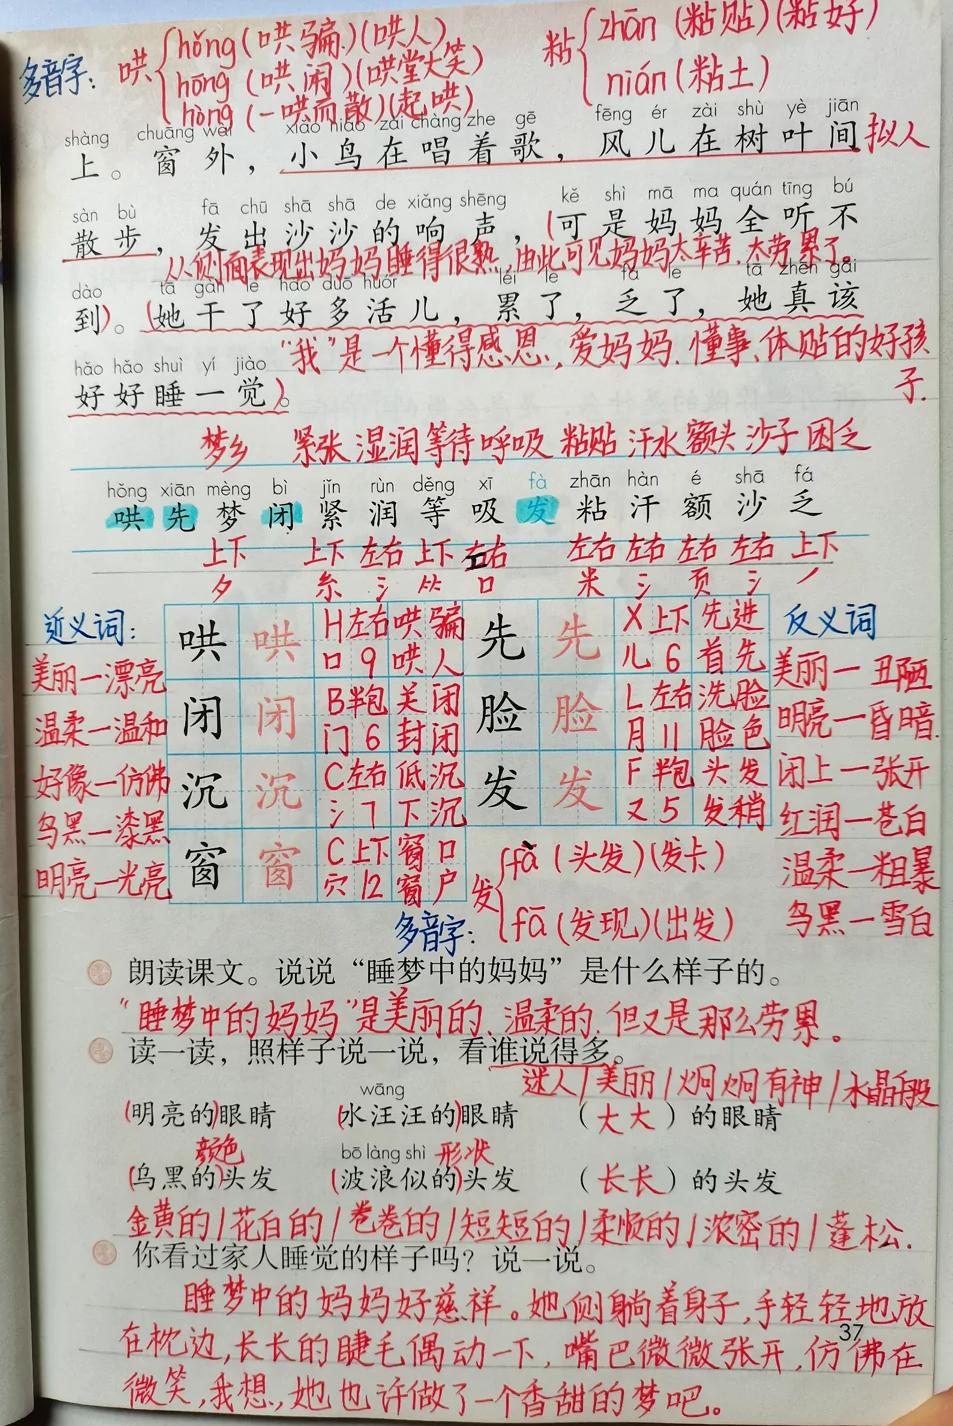 多音字：哄{hǒng(哄骗)(哄人)
hōng(哄闹)(哄堂大笑)
hòng(一哄而散)(起哄)
粘{zhān(粘贴)(粘好)
nián(粘土)
shàng chuāng wài xiǎo niǎo zài chàng zhe gē fēng ér zài shù yè jiān
上。窗外，小鸟在唱着歌，风儿在树叶间 拟人
sàn bù fā chū shā shā de xiǎng shēng kě shì mā ma quán tīng bú
散步，发出沙沙的响声，(可是妈妈全听不
从侧面表现出妈妈睡得很熟,由此可见妈妈太辛苦、太劳累了。
dào tā gàn le hǎo duō huór lèi le fá le tā zhēn gāi
到)。(她干了好多活儿，累了，乏了，她真该
"我"是一个懂得感恩、爱妈妈、懂事、体贴的好孩子.
hǎo hǎo shuì yí jiào
好好睡一觉)。
梦乡 紧张 湿润 等待 呼吸 粘贴 汗水 额头 沙子 困乏
hǒng xiān mèng bì jǐn rùn děng xī fà zhān hàn é shā fá
哄 先 梦 闭 紧 润 等 吸 发 粘 汗 额 沙 乏
上下 上下 左右 上下 左右 左右 左右 左右 左右 上下
夕 糸 氵 ⺮ 口 米 氵 页 氵 丿
近义词：
美丽—漂亮
温柔—温和
好像—仿佛
乌黑—漆黑
明亮—光亮
哄 哄 H 左右 哄骗 先 先 X 上下 先进
口 9 哄人 儿 6 首先
闭 闭 B 半包 关闭 脸 脸 L 左右 洗脸
门 6 封闭 月 11 脸色
沉 沉 C 左右 低沉 发 发 F 半包 头发
氵 7 下沉 又 5 发稍
窗 窗 C 上下 窗口
穴 12 窗户
反义词
美丽—丑陋
明亮—昏暗.
闭上—张开
红润—苍白
温柔—粗暴
乌黑—雪白
多音字：发{fà(头发)(发卡)
fā(发现)(出发)
朗读课文。说说“睡梦中的妈妈”是什么样子的。
"睡梦中的妈妈"是美丽的、温柔的,但又是那么劳累。
读一读，照样子说一说，看谁说得多。
迷人/美丽/炯炯有神/水晶般
wāng
(明亮的)眼睛 (水汪汪的)眼睛 （大大）的眼睛
颜色 bō làng shì 形状
(乌黑的)头发 (波浪似的)头发 （长长）的头发
金黄的/花白的/卷卷的/短短的/柔顺的/浓密的/蓬松.
你看过家人睡觉的样子吗？说一说。
睡梦中的妈妈好慈祥。她侧躺着身子,手轻轻地放
37
在枕边,长长的睫毛偶动一下,嘴巴微微张开,仿佛在
微笑,我想,她也许做了一个香甜的梦吧。